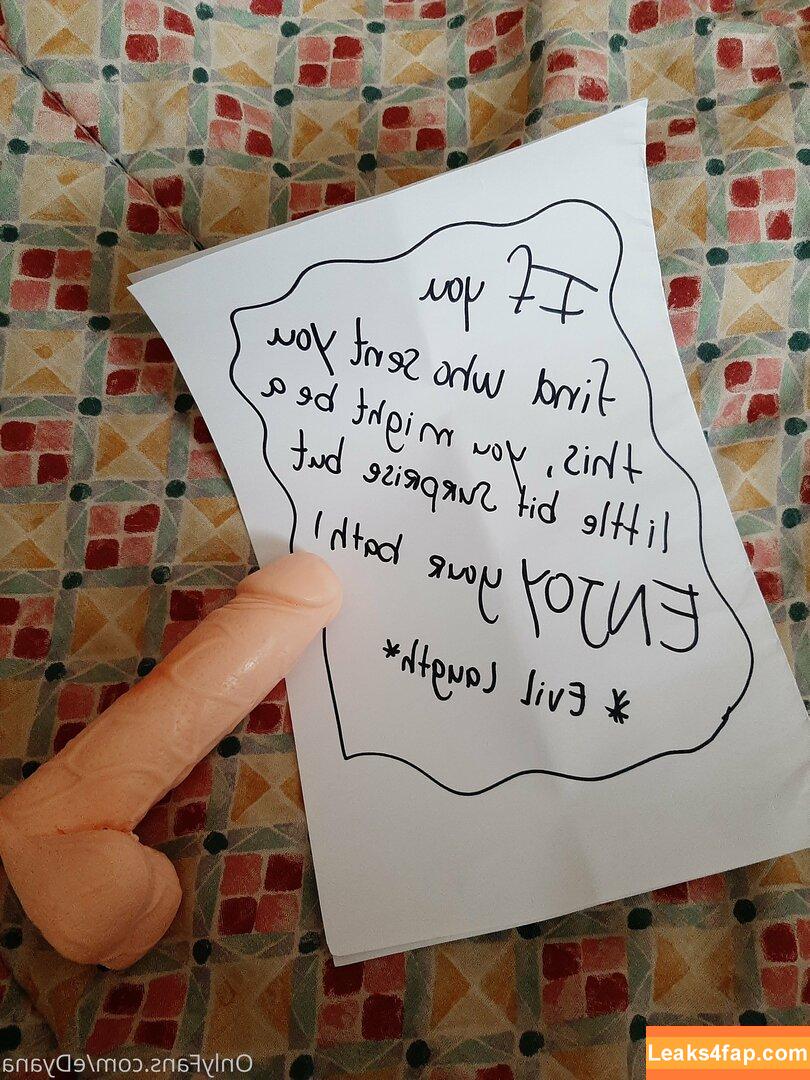 If you
find who sent you
this, you might be a
little bit surprise but
ENJOY your bath!
* Evil Laugth*
OnlyFans.com/eDyana
Leaks4fap.com